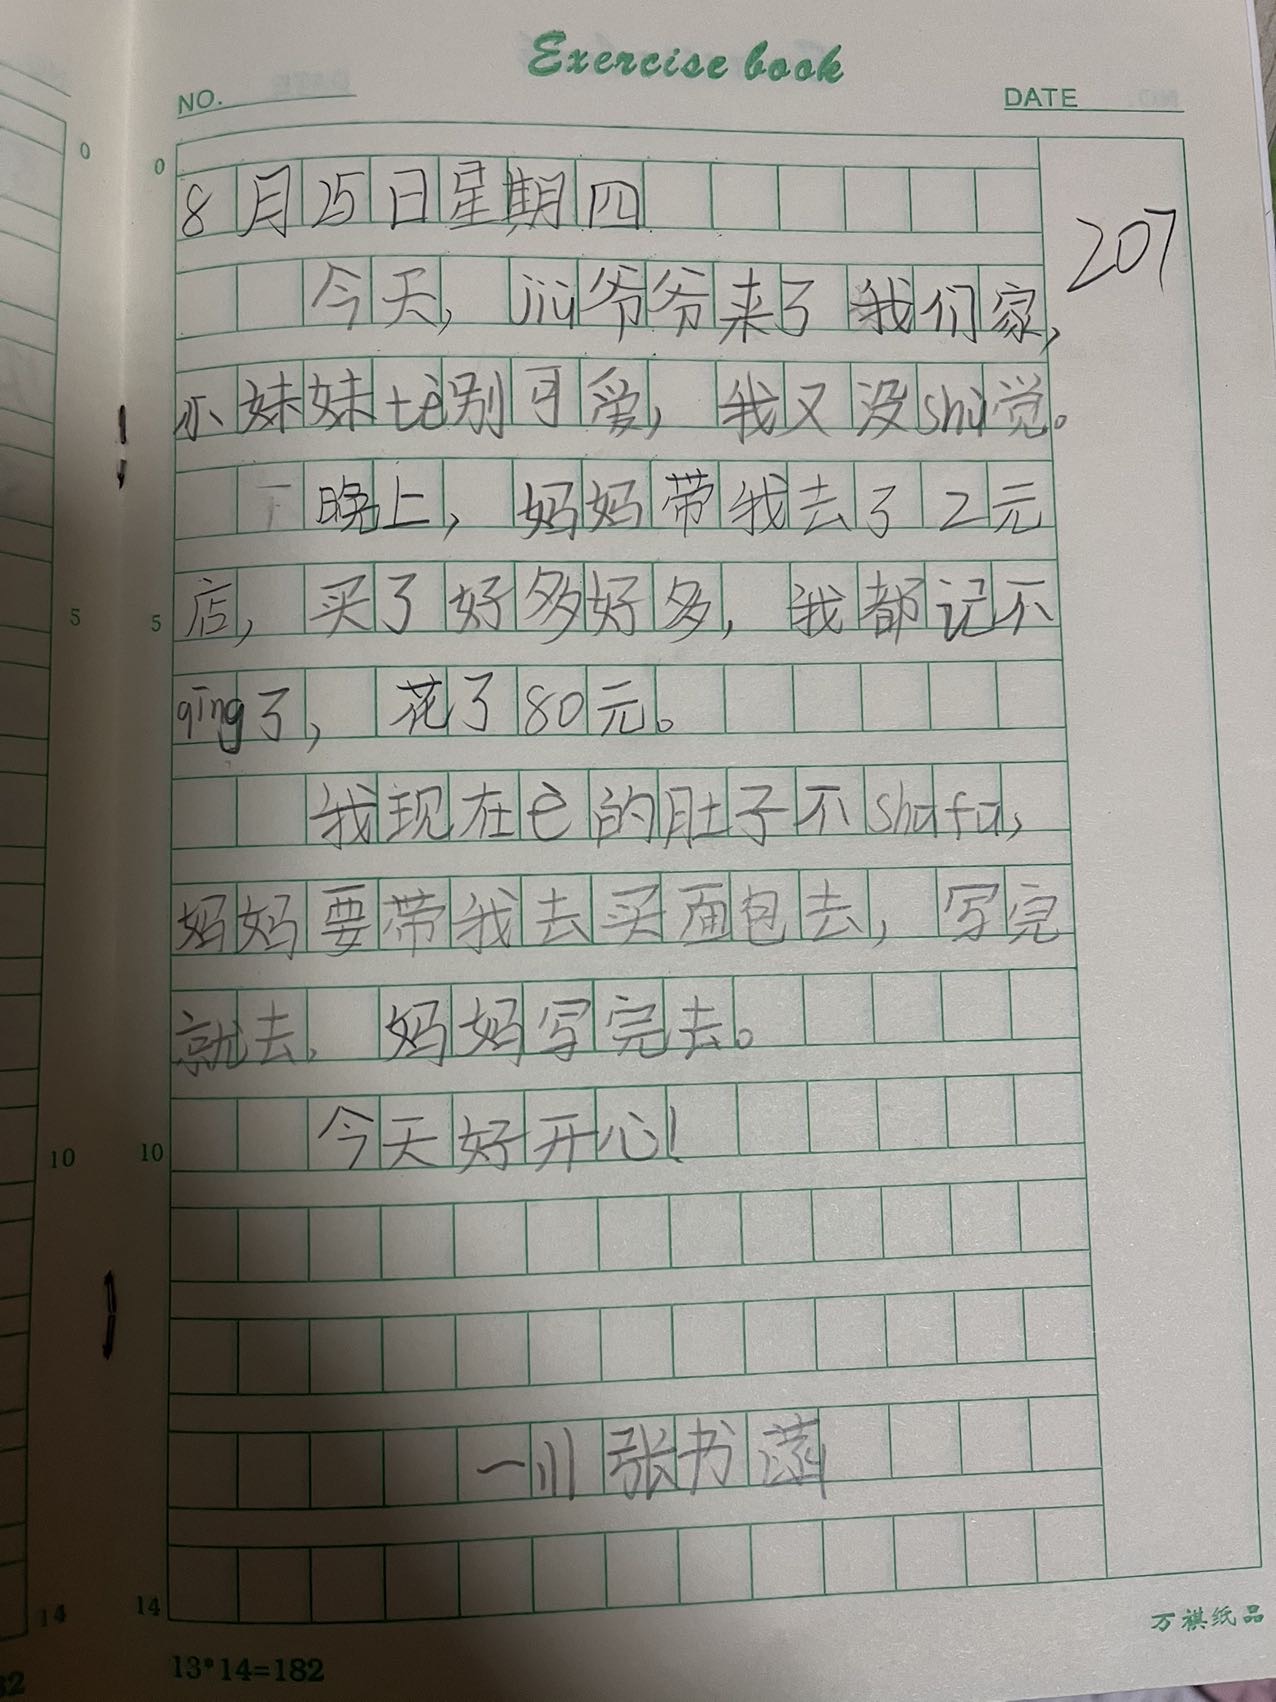 Exercise book
NO.
DATE
8月25日星期四
207
今天，jiù爷爷来了我们家，
小妹妹tè别可爱，我又没shuì觉。
晚上，妈妈带我去了2元
店，买了好多好多，我都记不
qīng了，花了80元。
我现在è的肚子不shufu，
妈妈要带我去买面包去，写完
就去，妈妈写完去。
今天好开心！
一川张书菡
0
5
10
14
0
5
10
14
13*14=182
万祺纸品